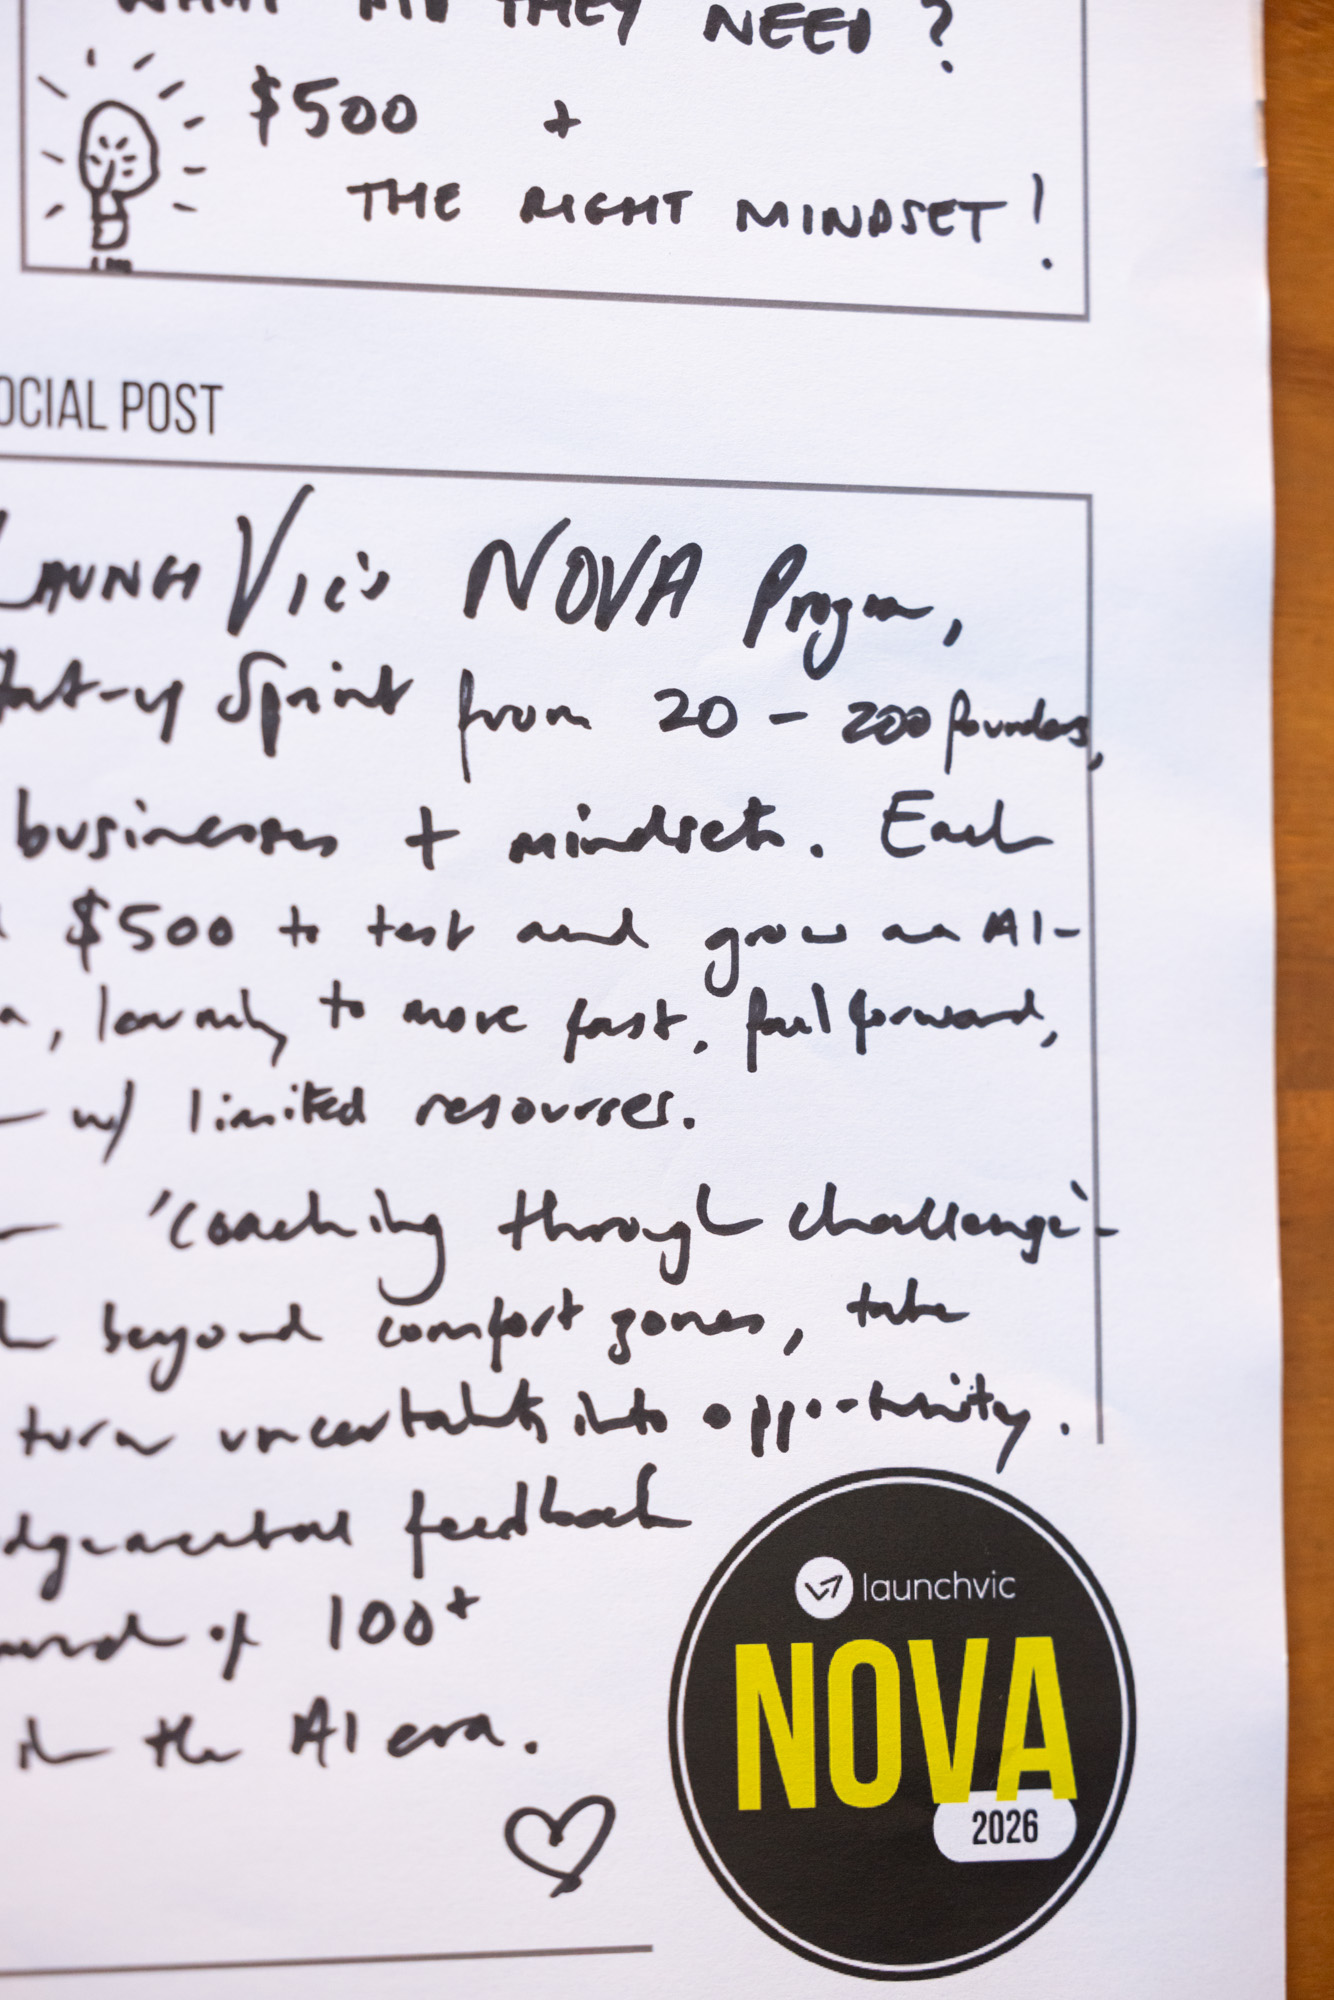 WHAT DID THEY NEED?
$500 +
THE RIGHT MINDSET!
OCIAL POST
LAUNCH Vic's NOVA Program,
tart-up Sprint from 20 - 200 founders,
businesses + mindsets. Each
$500 to test and grow an AI-
, learning to move fast, fail forward,
w/ limited resources.
'coaching through challenge'-
beyond comfort zones, take
turn uncertainty into opportunity.
dgemental feedback
of 100+
in the AI era.
launchvic
NOVA
2026